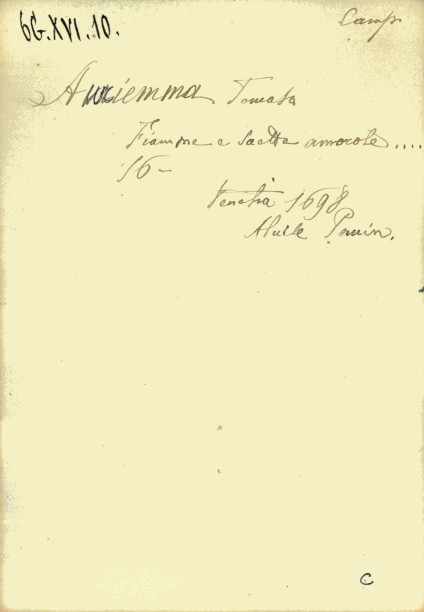 6G.XVI.10.
Camp.
Auriemma Tomaso
Fiamme e Saette amorose ....
16-
Venetia 1698
Aluise Pavin.
C